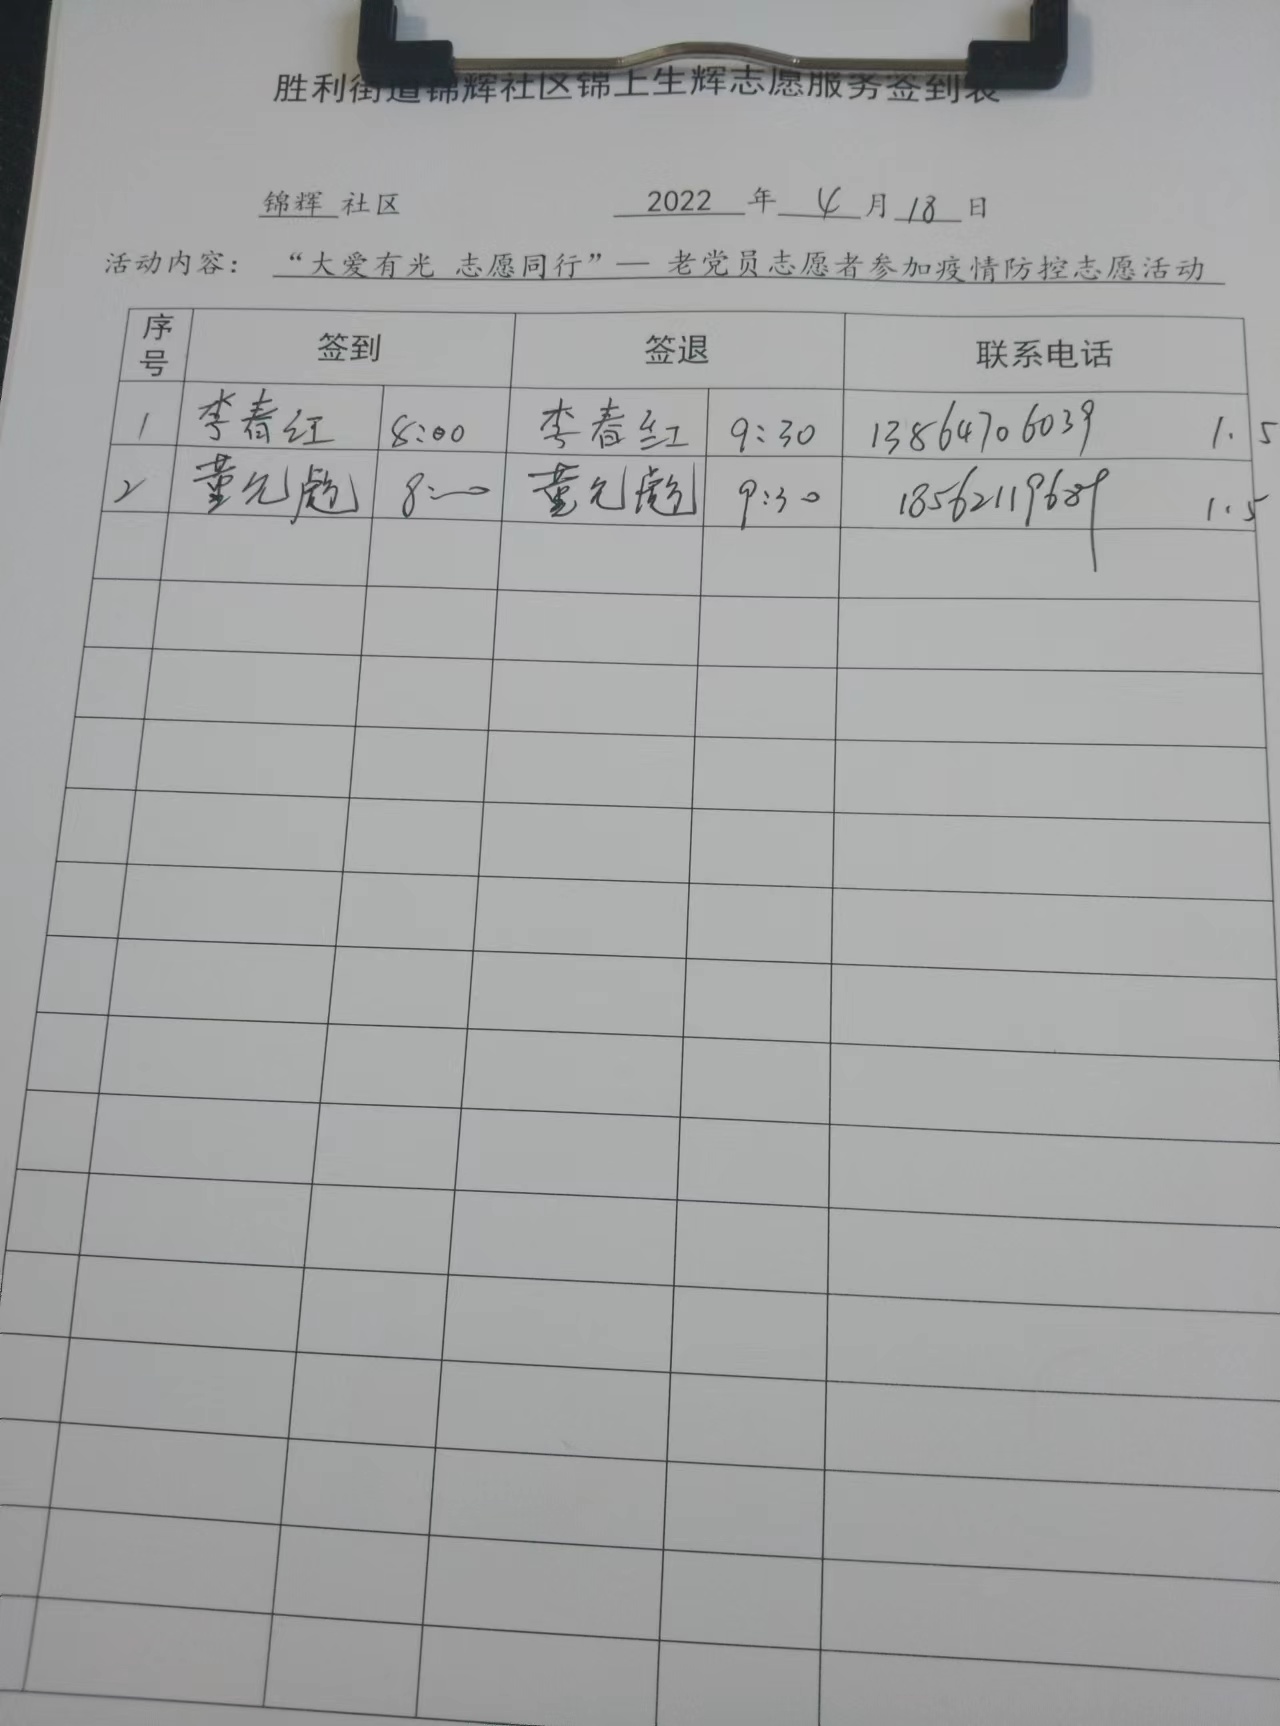 胜利街道锦辉社区锦上生辉志愿服务签到表
锦辉 社区 2022 年 4 月 18 日
活动内容： “大爱有光 志愿同行”— 老党员志愿者参加疫情防控志愿活动
序号 签到 签退 联系电话
1 李春红 8:00 李春红 9:30 13864706039 1.5
2 董允彪 8:00 董允彪 9:30 18562119689 1.5